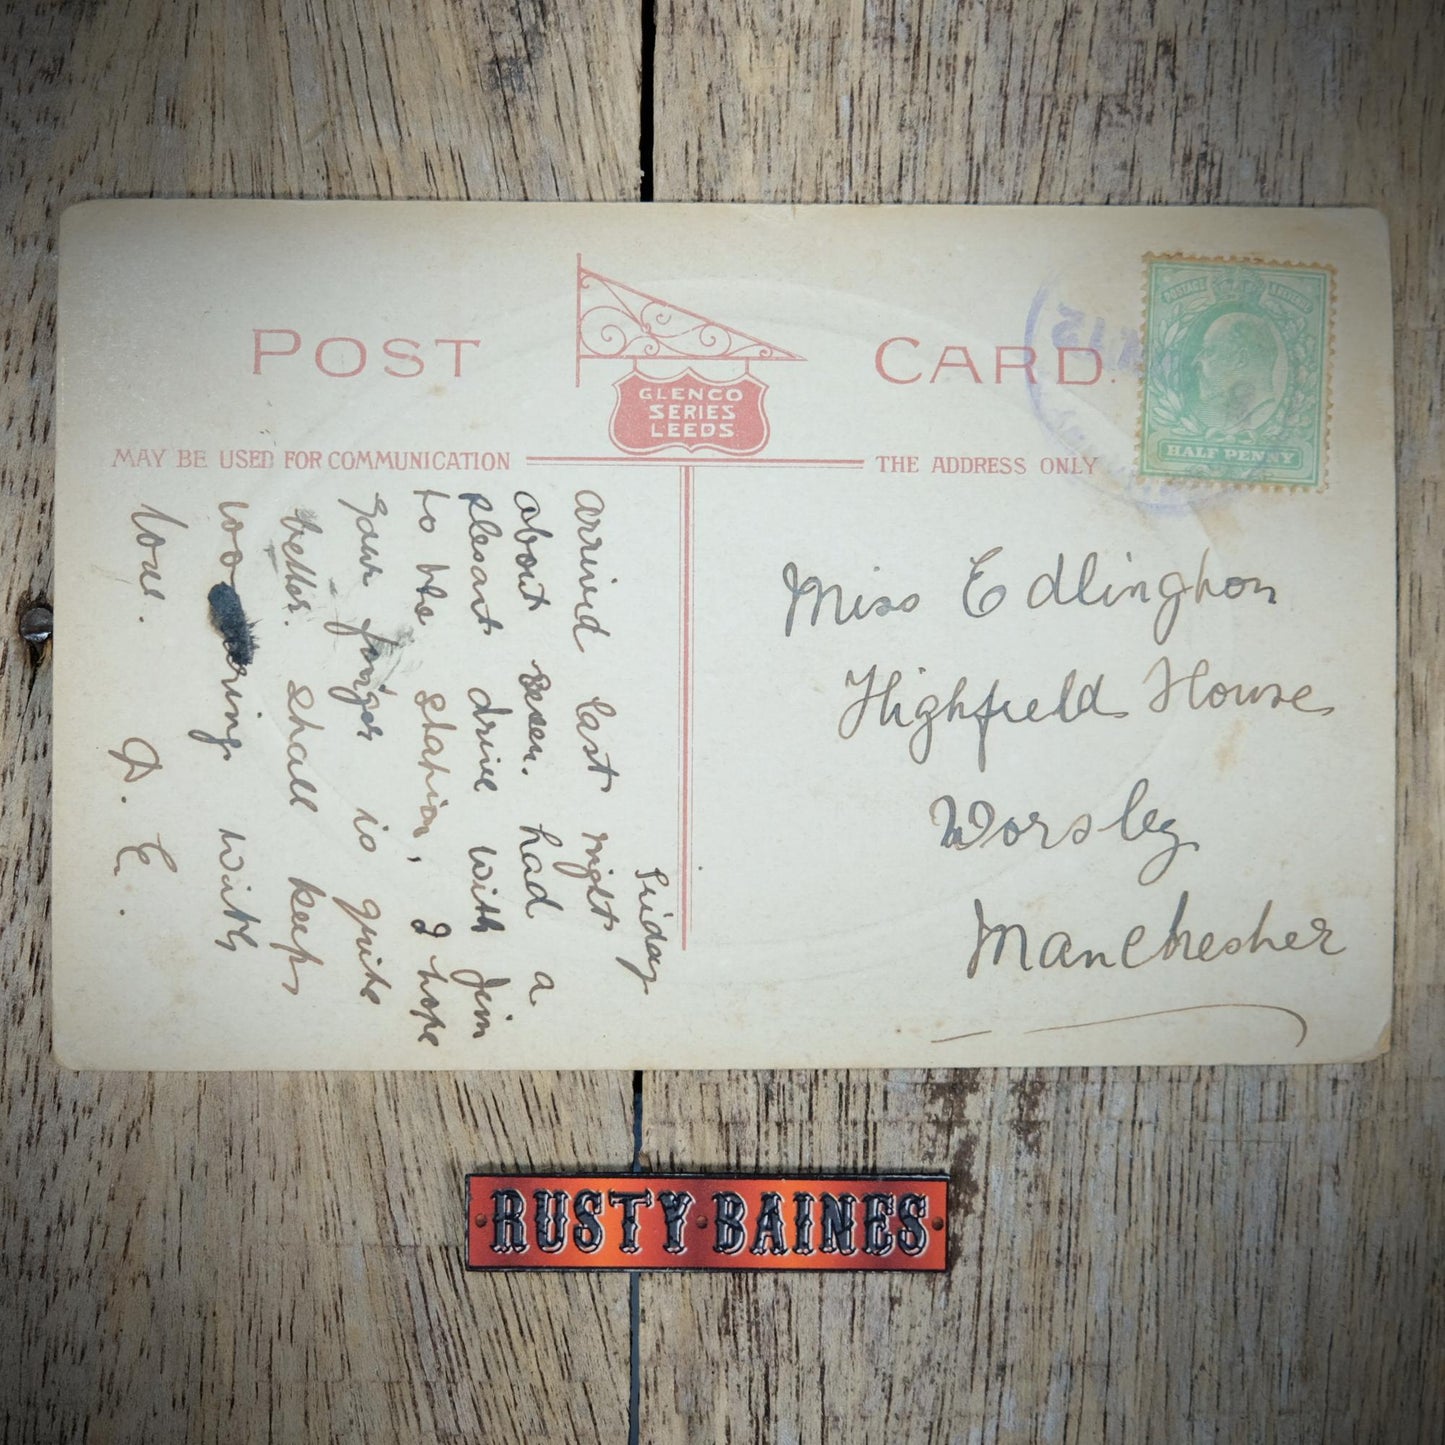 POST CARD.
GLENCO
SERIES
LEEDS
MAY BE USED FOR COMMUNICATION
THE ADDRESS ONLY
POSTAGE & REVENUE
HALF PENNY
Friday
arrived last night
about had a
plesant drive with Jim
to the station, I hope
your finger is quite
better. shall keep
with
love. D. E.
Miss Edlington
Highfield House
Worsley
Manchester
RUSTY BAINES